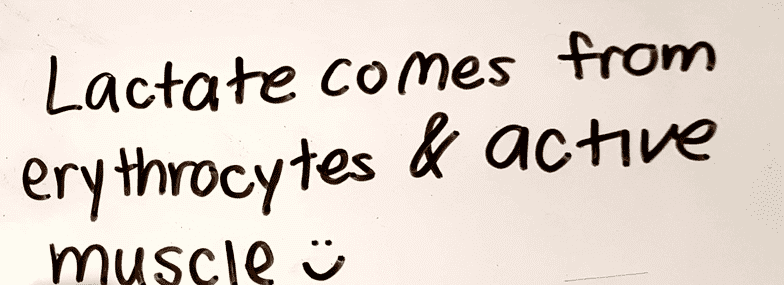 Lactate comes from
erythrocytes & active
muscle ü